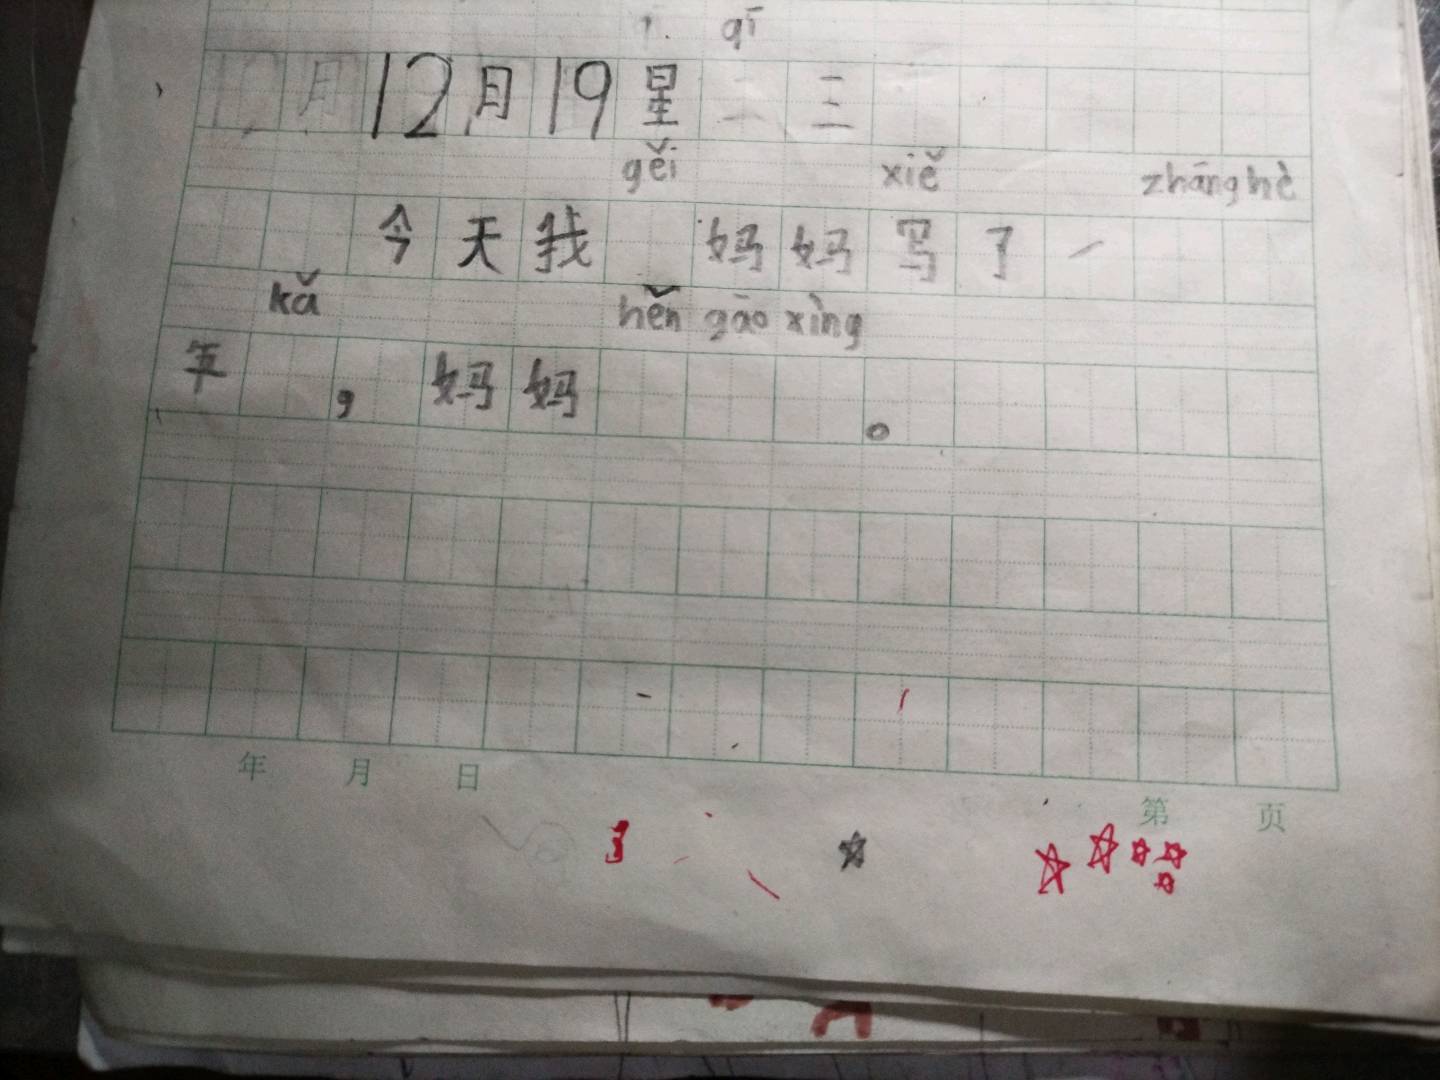 qī
12月19星 三
gěi xiě zhāng hè
今天我 妈妈写了一
kǎ hěn gāo xìng
年 , 妈妈 。
年 月 日
第 页